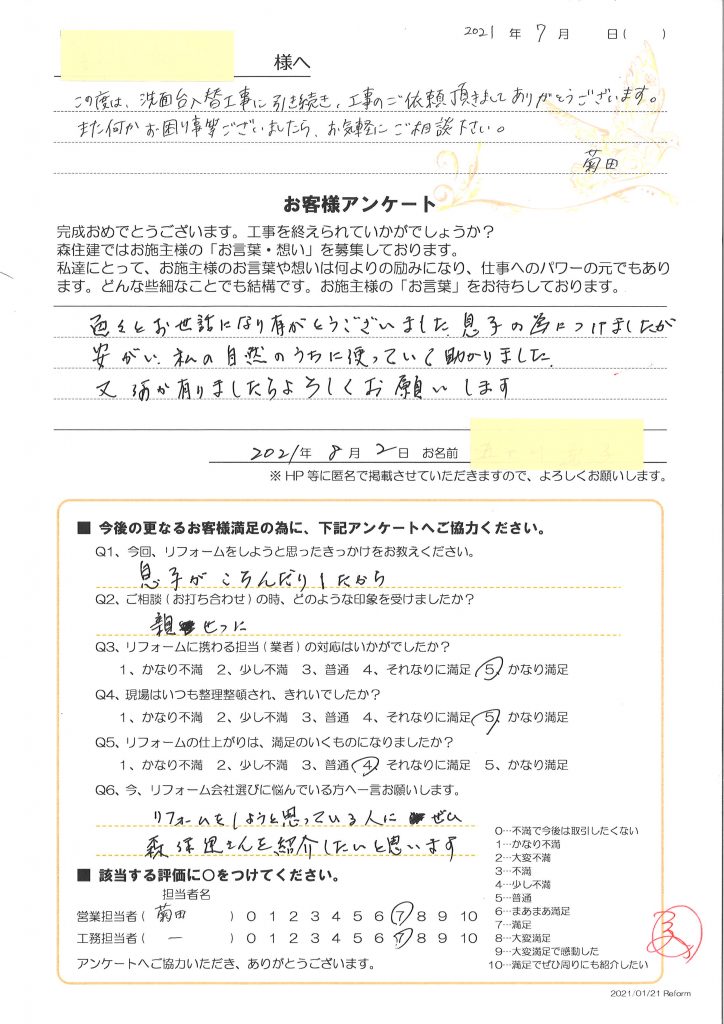 2021 年 7 月 日( )
様へ
この度は、洗面台入替工事に引き続き、工事のご依頼頂きましてありがとうございます。
また何かお困り事等ございましたら、お気軽にご相談下さい。
菊田
お客様アンケート
完成おめでとうございます。工事を終えられていかがでしょうか?
森住建ではお施主様の「お言葉・想い」を募集しております。
私達にとって、お施主様のお言葉や想いは何よりの励みになり、仕事へのパワーの元でもあり
ます。どんな些細なことでも結構です。お施主様の「お言葉」をお待ちしております。
色々とお世話になり有がとうございました 息子の為につけましたが
安がい、私の自然のうちに使っていて助かりました
又何か有りましたらよろしくお願いします
2021年 8 月 2 日 お名前
※HP等に匿名で掲載させていただきますので、よろしくお願いします。
■ 今後の更なるお客様満足の為に、下記アンケートへご協力ください。
Q1、今回、リフォームをしようと思ったきっかけをお教えください。
息子がころんだりしたから
Q2、ご相談(お打ち合わせ)の時、どのような印象を受けましたか?
親せつに
Q3、リフォームに携わる担当(業者)の対応はいかがでしたか?
1、かなり不満 2、少し不満 3、普通 4、それなりに満足 5、かなり満足
Q4、現場はいつも整理整頓され、きれいでしたか?
1、かなり不満 2、少し不満 3、普通 4、それなりに満足 5、かなり満足
Q5、リフォームの仕上がりは、満足のいくものになりましたか?
1、かなり不満 2、少し不満 3、普通 4、それなりに満足 5、かなり満足
Q6、今、リフォーム会社選びに悩んでいる方へ一言お願いします。
リフォームをしようと思っている人に ぜひ
森住建さんを紹介したいと思います
■ 該当する評価に○をつけてください。
担当者名
営業担当者( 菊田 ) 0 1 2 3 4 5 6 7 8 9 10
工務担当者( ー ) 0 1 2 3 4 5 6 7 8 9 10
アンケートへご協力いただき、ありがとうございます。
0…不満で今後は取引したくない
1…かなり不満
2…大変不満
3…不満
4…少し不満
5…普通
6…まあまあ満足
7…満足
8…大変満足
9…大変満足で感動した
10…満足でぜひ周りにも紹介したい
2021/01/21 Reform